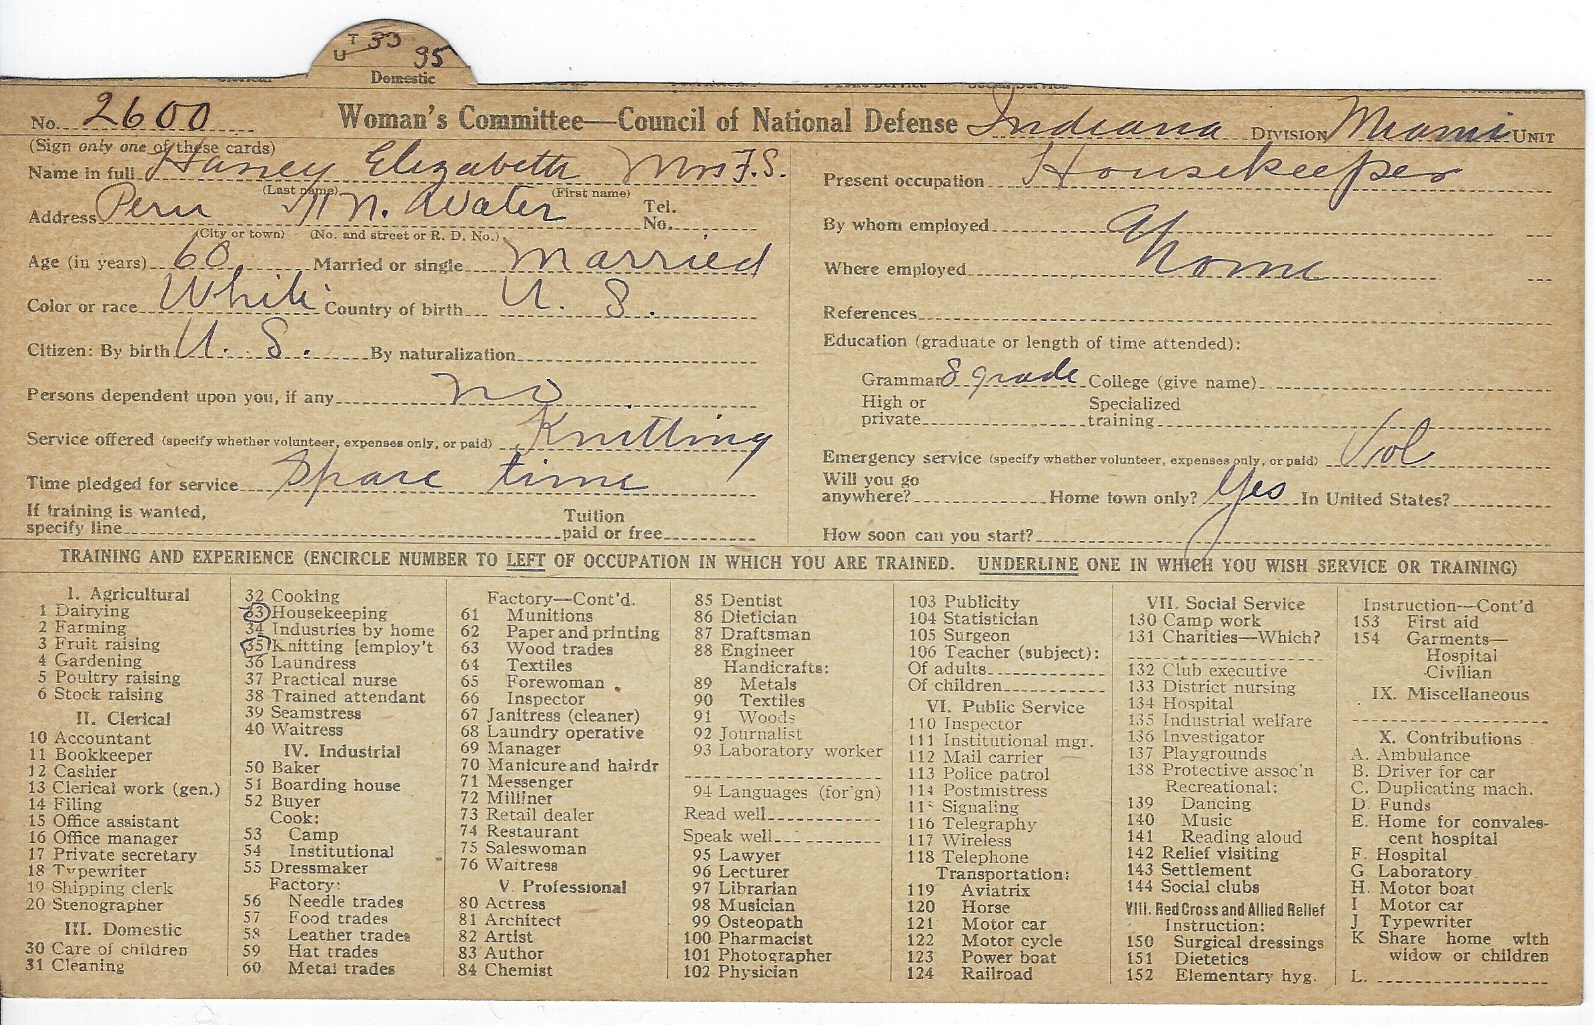 T 33
U 35
Domestic
No. 2600 Woman's Committee—Council of National Defense Indiana DIVISION Miami UNIT
(Sign only one of these cards)
Name in full Haney Elizabeth Mrs F.S.
(Last name) (First name)
Address Peru N. Water Tel. No.
(City or town) (No. and street or R. D. No.)
Age (in years) 60 Married or single Married
Color or race White Country of birth U. S.
Citizen: By birth U. S. By naturalization
Persons dependent upon you, if any no
Service offered (specify whether volunteer, expenses only, or paid) Knitting
Time pledged for service Spare time
If training is wanted, specify line Tuition paid or free
Present occupation Housekeeper
By whom employed At
Where employed home
References
Education (graduate or length of time attended):
Grammar 8 grade College (give name)
High or private Specialized training
Emergency service (specify whether volunteer, expenses only, or paid) Vol
Will you go anywhere? Home town only? Yes In United States?
How soon can you start?
TRAINING AND EXPERIENCE (ENCIRCLE NUMBER TO LEFT OF OCCUPATION IN WHICH YOU ARE TRAINED. UNDERLINE ONE IN WHICH YOU WISH SERVICE OR TRAINING)
I. Agricultural
1 Dairying
2 Farming
3 Fruit raising
4 Gardening
5 Poultry raising
6 Stock raising
II. Clerical
10 Accountant
11 Bookkeeper
12 Cashier
13 Clerical work (gen.)
14 Filing
15 Office assistant
16 Office manager
17 Private secretary
18 Typewriter
19 Shipping clerk
20 Stenographer
III. Domestic
30 Care of children
31 Cleaning
32 Cooking
33 Housekeeping
34 Industries by home
35 Knitting [employ't
36 Laundress
37 Practical nurse
38 Trained attendant
39 Seamstress
40 Waitress
IV. Industrial
50 Baker
51 Boarding house
52 Buyer
Cook:
53 Camp
54 Institutional
55 Dressmaker
Factory:
56 Needle trades
57 Food trades
58 Leather trades
59 Hat trades
60 Metal trades
Factory—Cont'd.
61 Munitions
62 Paper and printing
63 Wood trades
64 Textiles
65 Forewoman
66 Inspector
67 Janitress (cleaner)
68 Laundry operative
69 Manager
70 Manicure and hairdr
71 Messenger
72 Milliner
73 Retail dealer
74 Restaurant
75 Saleswoman
76 Waitress
V. Professional
80 Actress
81 Architect
82 Artist
83 Author
84 Chemist
85 Dentist
86 Dietician
87 Draftsman
88 Engineer
Handicrafts:
89 Metals
90 Textiles
91 Woods
92 Journalist
93 Laboratory worker
94 Languages (for'gn)
Read well
Speak well
95 Lawyer
96 Lecturer
97 Librarian
98 Musician
99 Osteopath
100 Pharmacist
101 Photographer
102 Physician
103 Publicity
104 Statistician
105 Surgeon
106 Teacher (subject):
Of adults
Of children
VI. Public Service
110 Inspector
111 Institutional mgr.
112 Mail carrier
113 Police patrol
114 Postmistress
115 Signaling
116 Telegraphy
117 Wireless
118 Telephone
Transportation:
119 Aviatrix
120 Horse
121 Motor car
122 Motor cycle
123 Power boat
124 Railroad
VII. Social Service
130 Camp work
131 Charities—Which?
132 Club executive
133 District nursing
134 Hospital
135 Industrial welfare
136 Investigator
137 Playgrounds
138 Protective assoc'n
Recreational:
139 Dancing
140 Music
141 Reading aloud
142 Relief visiting
143 Settlement
144 Social clubs
VIII. Red Cross and Allied Relief
Instruction:
150 Surgical dressings
151 Dietetics
152 Elementary hyg.
Instruction—Cont'd
153 First aid
154 Garments—
Hospital
Civilian
IX. Miscellaneous
X. Contributions
A. Ambulance
B. Driver for car
C. Duplicating mach.
D. Funds
E. Home for convales-
cent hospital
F. Hospital
G Laboratory
H. Motor boat
I Motor car
J Typewriter
K Share home with
widow or children
L.